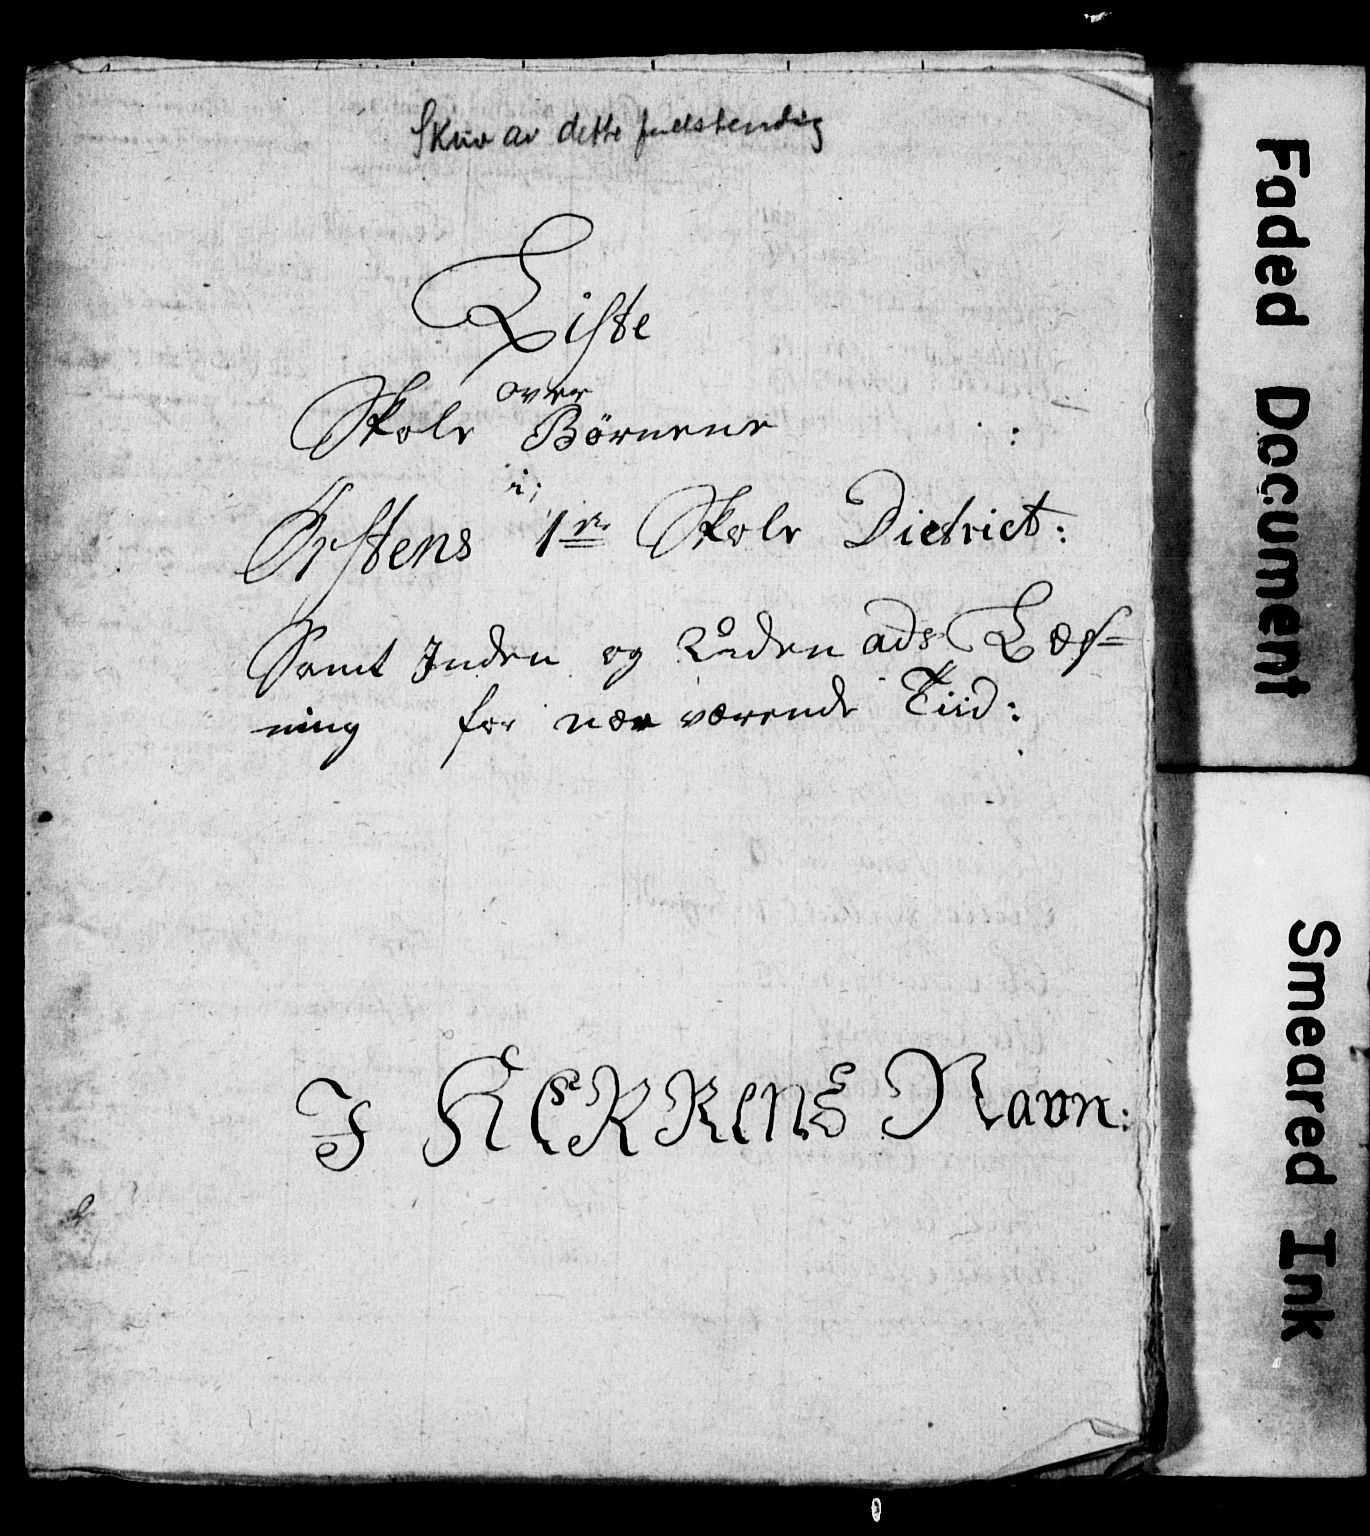 Skriv av dette fullstendig
Liste
over
Skole Börnene :
i;
Örstens 1re Skole District:
Samt Inden og Uden ads Læs=
ning for nær værende Tiid:
I HERRENS Navn:
Faded Document
Smeared Ink